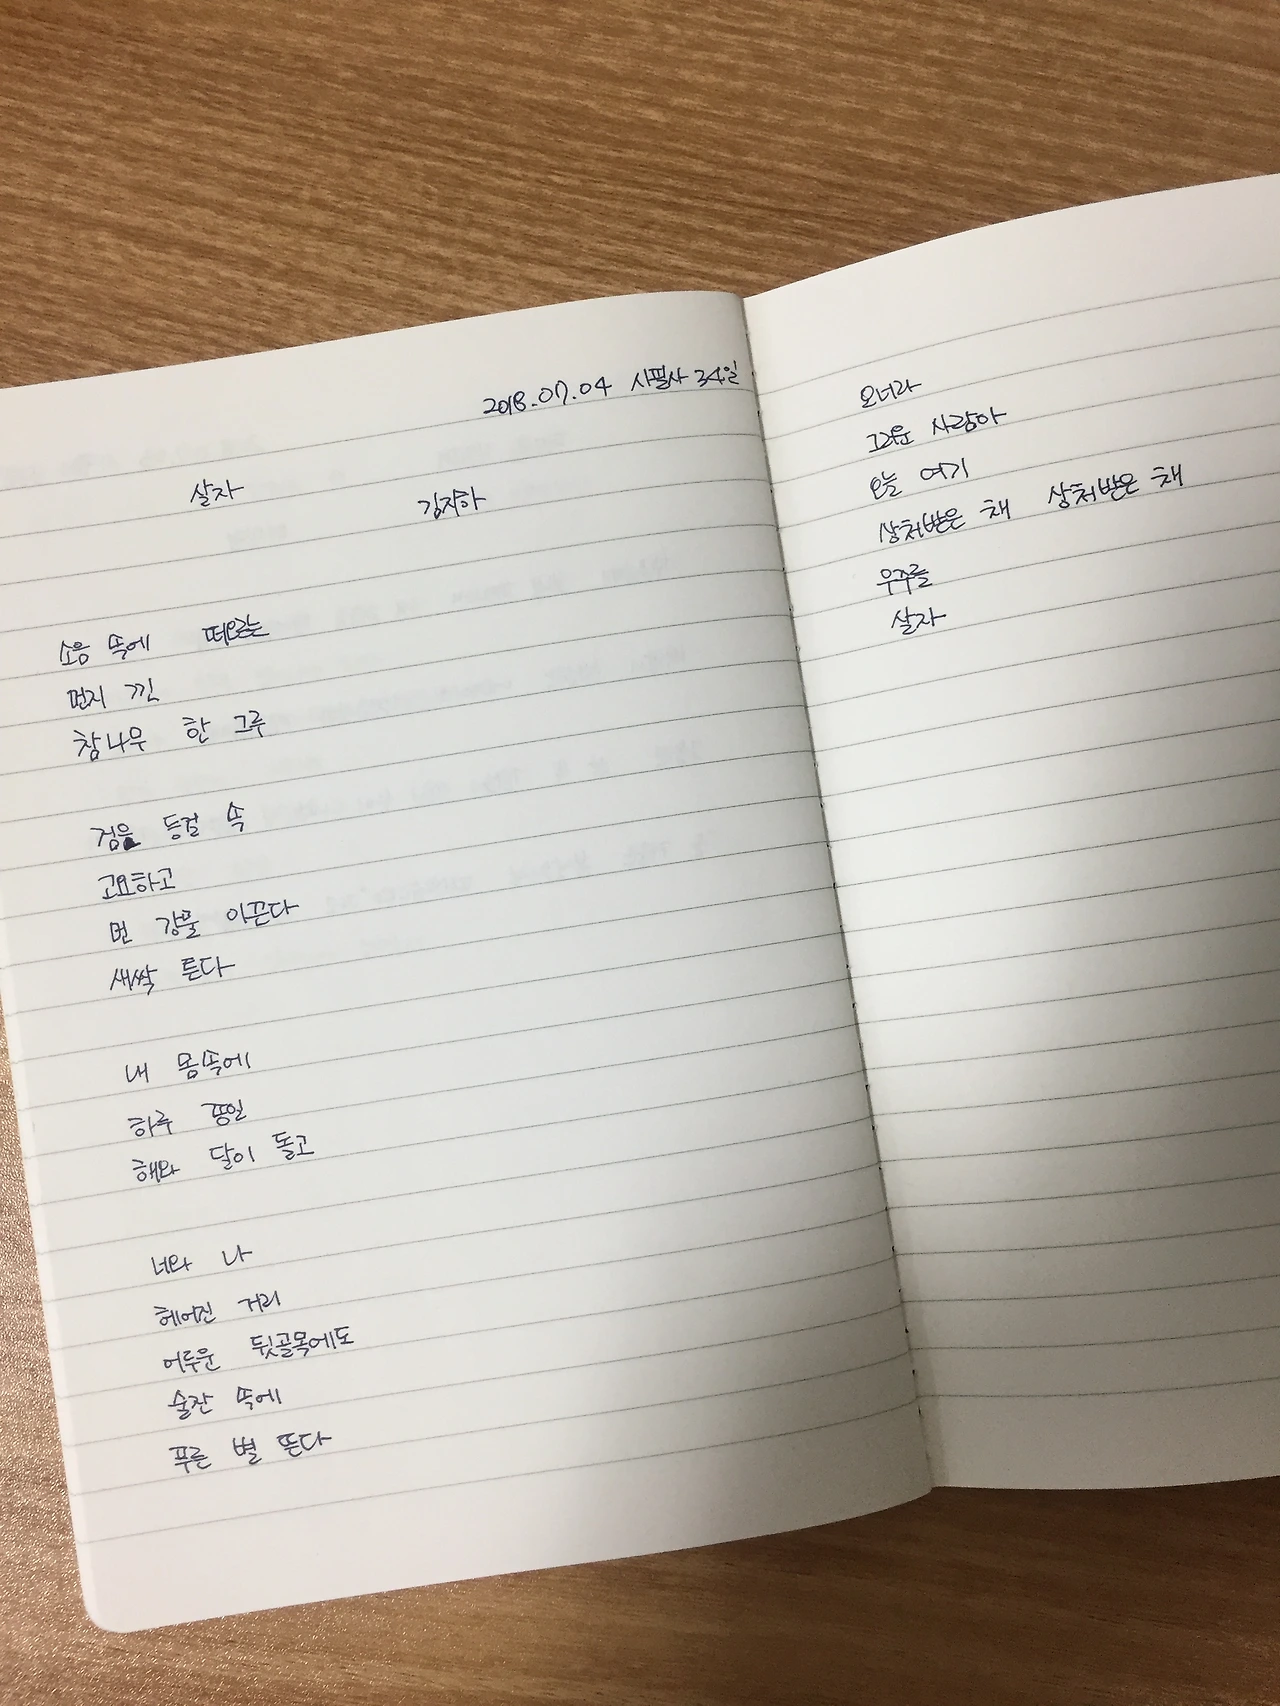 2018.07.04 시필사 34일
살자 김지하
소음 속에 떠오르는
먼지 낀
참나무 한 그루
검은 등걸 속
고요하고
먼 강물 이끈다
새싹 튼다
내 몸속에
하루 종일
해와 달이 돌고
너와 나
헤어진 거리
어두운 뒷골목에도
술잔 속에
푸른 별 뜬다
오너라
그리운 사랑아
오늘 여기
상처받은 채 상처받은 채
우주를
살자